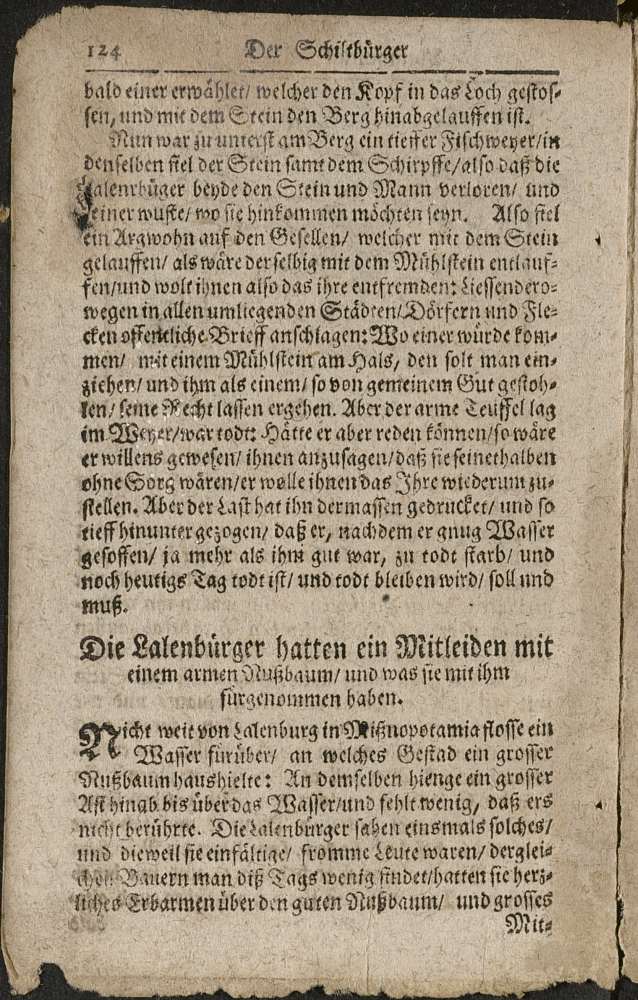 124 Der Schiltbürger
bald einer erwählet/ welcher den Kopf in das Loch gestos-
sen, und mit dem Stein den Berg hinabgelauffen ist.
Nun war zu unterst am Berg ein tieffer Fischweyer/in
denselben fiel der Stein samt dem Schirpffe/also daß die
Lalenbüger beyde den Stein und Mann verloren/ und
keiner wuste/ wo sie hinkommen möchten seyn. Also fiel
ein Argwohn auf den Gesellen/ welcher mit dem Stein
gelauffen/ als wäre derselbig mit dem Mühlstein entlauf-
fen/und wolt ihnen also das ihre entfremden: Liessendero-
wegen in allen umliegenden Städten/Dörfern und Fle-
cken offentliche Brieff anschlagen: Wo einer würde kom-
men/ mit einem Mühlstein am Hals, den solt man ein-
ziehen/ und ihm als einem/ so von gemeinem Gut gestoh-
len/ seine Recht lassen ergehen. Aber der arme Teuffel lag
im Weyer/war todt: Hätte er aber reden können/so wäre
er willens gewesen/ ihnen anzusagen/ daß sie seinethalben
ohne Sorg wären/er wolle ihnen das Ihre wiederum zu-
stellen. Aber der Last hat ihn dermassen gedrucket/ und so
tieff hinunter gezogen/ daß er, nachdem er gnug Wasser
gesoffen/ ja mehr als ihm gut war, zu todt starb/ und
noch heutigs Tag todt ist/ und todt bleiben wird/ soll und
muß.
Die Lalenbürger hatten ein Mitleiden mit
einem armen Nußbaum/ und was sie mit ihm
fürgenommen haben.
Nicht weit von Lalenburg in Mißnopotamia flosse ein
Wasser fürüber/ an welches Gestad ein grosser
Nußbaum haushielte: An demselben hienge ein grosser
Ast hinab bis über das Wasser/und fehlt wenig, daß ers
nicht berührte. Die Lalenbürger sahen einsmals solches/
und dieweil sie einfältige/ fromme Leute waren/ derglei-
chen Bauern man diß Tags wenig findet/hatten sie herz-
liches Erbarmen über den guten Nußbaum/ und grosses
Mit-